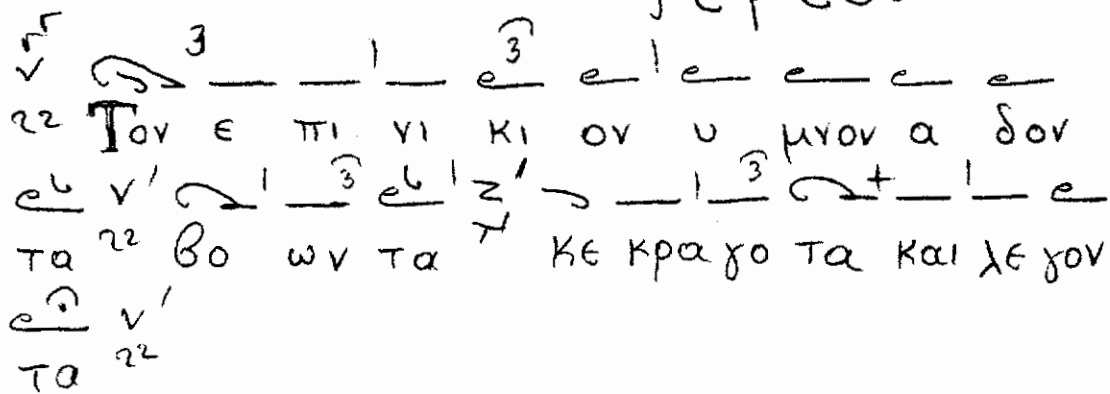 Τον ε πι νι κι ον υ μνον α δον
τα βο ων τα κε κρα γο τα και λε γον
τα